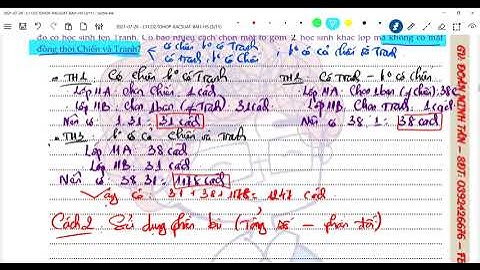 2021-07-29 - L11CD2TOHOP-XACSUAT-BAI1-HS (2/11)
đó có học sinh tên Tranh. Có bao nhiêu cách chọn một tổ gồm 2 học sinh khác lớp mà không có mặt
đồng thời Chiến và Tranh?
có Chiến ko có Tranh
có Tranh, ko có Chiến
, ko có cả Chiến và Tranh
TH1: Có Chiến ko có Tranh
Lớp 11A: Chọn Chiến: 1 cách
Lớp 11B: Chọn 1 bạn (≠ Tranh) 31 cách
Nên có: 1.31 = 31 cách
TH2: Có Tranh - ko có Chiến
Lớp 11A: Chọn 1 bạn (≠ Chiến): 38c
Lớp 11B: Chọn Tranh: 1 cách
Nên có: 38.1 = 38 cách
TH3: ko có cả Chiến và Tranh
Lớp 11A: 38 cách
Lớp 11B: 31 cách
Nên có: 38.31 = 1178 cách
Vậy có: 31 + 38 + 1178 = 1247 cách
Cách 2: Sử dụng phần bù (Tổng số - phần đối)
GV: ĐOÀN MINH TÂN - SĐT: